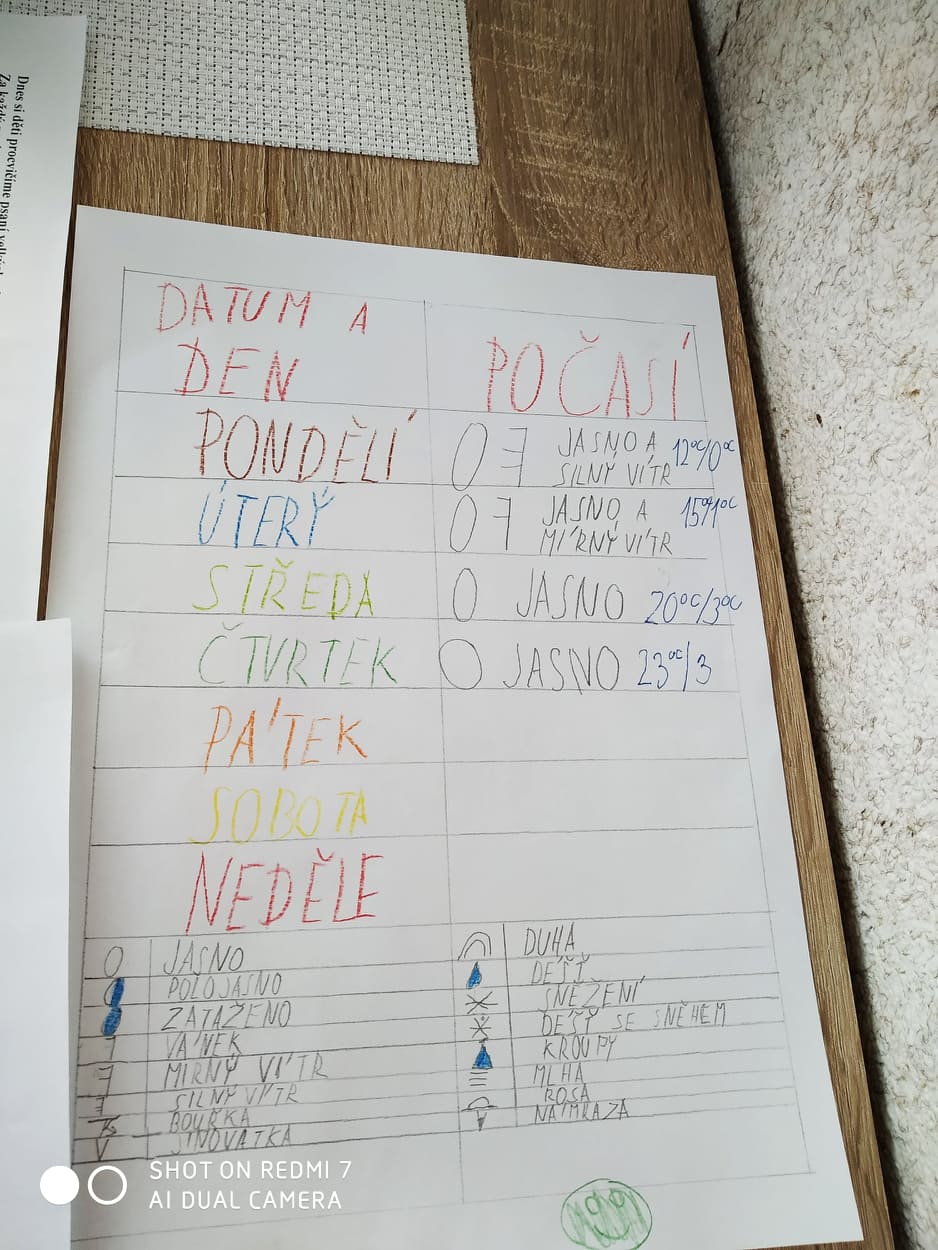 Dnes si děti procvičíme psaní
DATUM A
DEN
POČASÍ
PONDĚLÍ
JASNO A
SILNÝ VÍTR
12°C/0°C
ÚTERÝ
JASNO A
MÍRNÝ VÍTR
15°/1°C
STŘEDA
JASNO 20°C/3°C
ČTVRTEK
JASNO 23°C/3
PÁTEK
SOBOTA
NEDĚLE
JASNO
POLOJASNO
ZATAŽENO
VÁNEK
MÍRNÝ VÍTR
SILNÝ VÍTR
BOUŘKA
JINOVATKA
DUHA
DÉŠŤ
SNĚŽENÍ
DÉŠŤ SE SNĚHEM
KROUPY
MLHA
ROSA
NÁMRAZA
SHOT ON REDMI 7
AI DUAL CAMERA